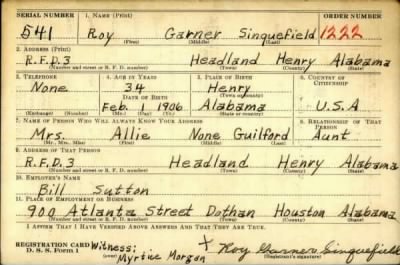 SERIAL NUMBER 1. NAME (Print) ORDER NUMBER
541 Roy Garner Sinquefield 1222
(First) (Middle) (Last)
2. ADDRESS (Print)
R.F.D.3 Headland Henry Alabama
(Number and street or R. F. D. number) (Town) (County) (State)
3. TELEPHONE 4. AGE IN YEARS 5. PLACE OF BIRTH 6. COUNTRY OF CITIZENSHIP
None 34 Henry
DATE OF BIRTH (Town or county)
Feb. 1 1906 Alabama U.S.A
(Exchange) (Number) (Mo.) (Day) (Yr.) (State or country)
7. NAME OF PERSON WHO WILL ALWAYS KNOW YOUR ADDRESS 8. RELATIONSHIP OF THAT PERSON
Mrs. Allie None Guilford Aunt
(Mr., Mrs., Miss) (First) (Middle) (Last)
9. ADDRESS OF THAT PERSON
R.F.D.3 Headland Henry Alabama
(Number and street or R. F. D. number) (Town) (County) (State)
10. EMPLOYER'S NAME
Bill Sutton
11. PLACE OF EMPLOYMENT OR BUSINESS
900 Atlanta Street Dothan Houston Alabama
(Number and street or R. F. D. number) (Town) (County) (State)
I AFFIRM THAT I HAVE VERIFIED ABOVE ANSWERS AND THAT THEY ARE TRUE.
REGISTRATION CARD Witness: X Roy Garner Sinquefield
D. S. S. Form 1 Myrtice Morgan